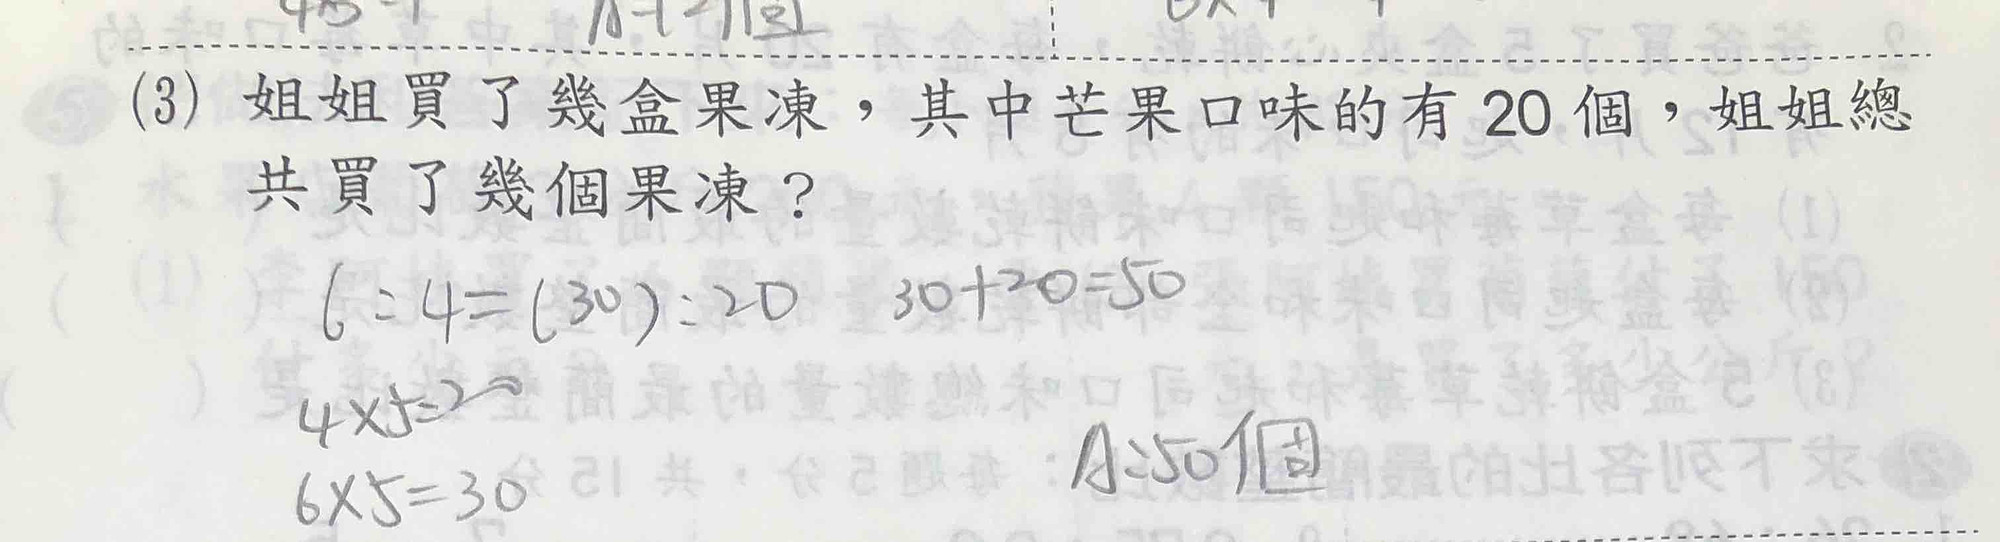 (3) 姐姐買了幾盒果凍，其中芒果口味的有 20 個，姐姐總
共買了幾個果凍？
6:4=(30):20 30+20=50
4×5=20
6×5=30
A:50個